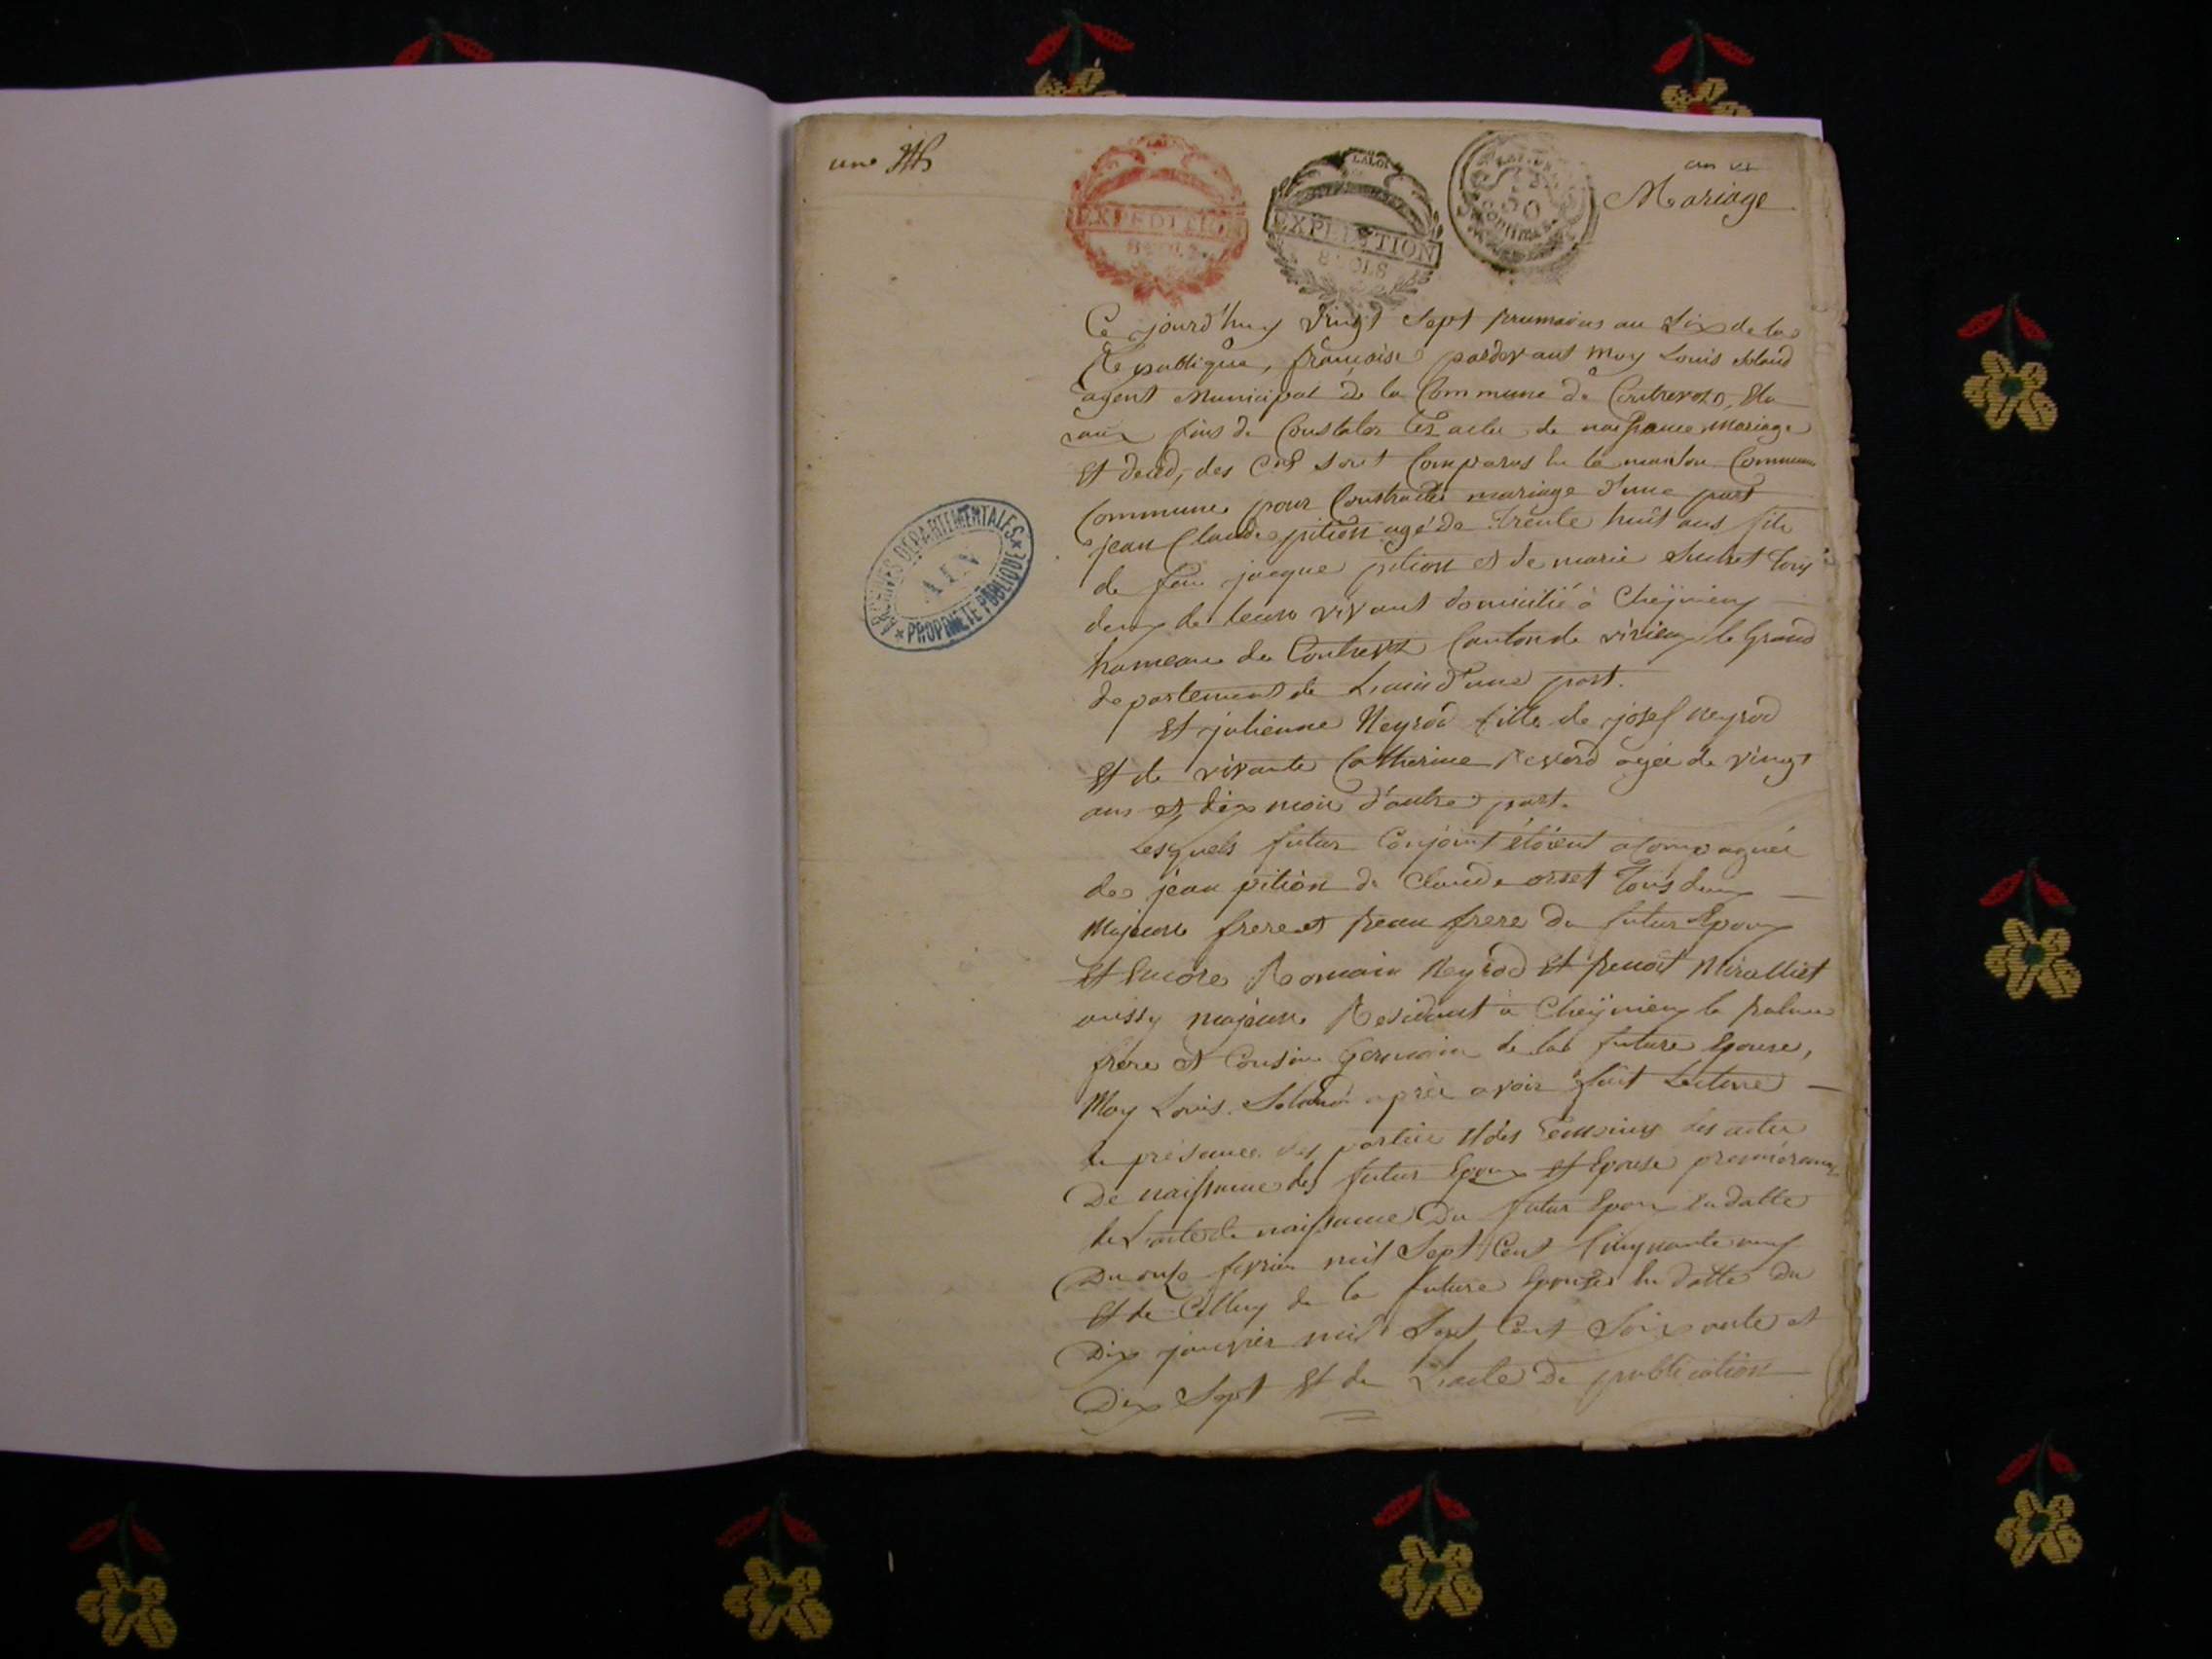 une
LA LOI
EXPEDITION
8 SOLS
LA LOI
EXPEDITION
8 SOLS
50
centimes
an VI
Mariage
ARCHIVES DEPARTEMENTALES
AIN
* PROPRIÉTÉ PUBLIQUE *
Ce jourd'huy vingt sept brumaires an Six de la
Republique, françoise pardevant moy Louis
agent Municipal de la Commune de Contrevoz, Elu
aux fins de Constater les actes de naissance mariage
Et decéd, des sont Comparus en la maison Commune
Commune pour Contracter mariage d'une part
jean Claude pition agé de Trente huit ans fils
de feu jacque pition et de marie Tous
deux de leurs vivant domicilié à Cheÿnieu
hameau de Contrevoz Canton de virieu le Grand
departement de L'ain d'une part.
Et julienne Neyrod fille de josef neyrod
Et de vivante Catherine agée de vingt
ans et dix mois d'autre part.
Lesquels futur Conjoint étoient acompagnés
de jean pition de Claude orset Tous deux
Majeurs frere et beau frere du futur Epoux
Et Encore Romain Neyrod Et benoit
aussy majeurs Residant à Cheÿnieu la balme
frere et Cousin Germain de la future Epouse,
Moy Louis après avoir fait Lecture
En présence des partie et des Temoins des actes
De naissance des futur Epoux et Epouse premierement
de L'acte de naissance Du futur Epoux En datte
Du onze fevrier mil Sept Cent Cinquante neuf
Et de Celluy de la future Epouse En datte Du
Dix janvier mil Sept Cent Soixante et
Dix Sept Et de L'acte De publication